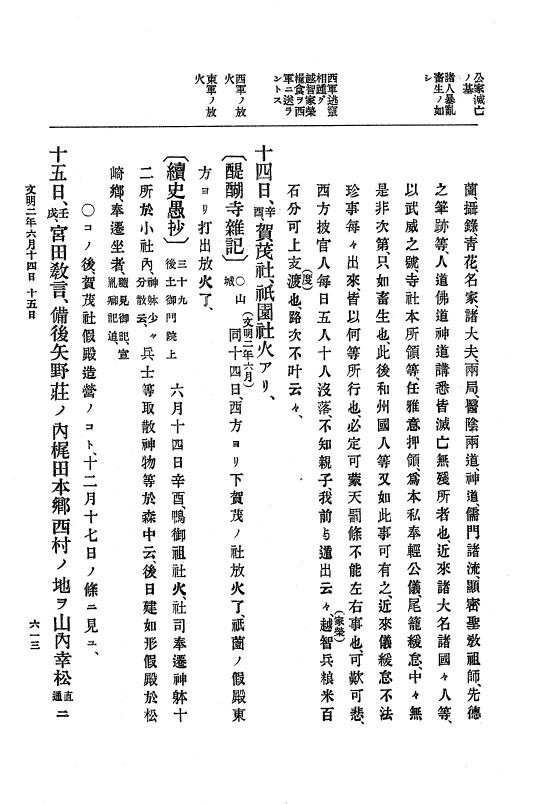 公家滅亡
ノ基
諸人暴亂
畜生ノ如
シ
西軍逃竄
相踵グ
越智家榮
糧食ヲ西
軍ニ送ラ
ントス
西軍ノ放
火
東軍ノ放
火
蘭、攝錄靑花、名家諸大夫、兩局、醫陰兩道、神道、儒門諸流、顯密聖敎祖師、先德
之筆跡等、人道佛道神道講悉皆滅亡無殘所者也、近來諸大名諸國々人等、
以武威之號、寺社本所領等、任雅意押領、爲本私奉輕公儀、尾籠緩怠、中々無
是非次第、只如畜生也、此後和州國人等又如此事可有之、近來儀緩怠不法
珍事每々出來、皆以何等所行也、必定可蒙天罰條不能左右事也、可歎可悲、
西方披官人每日五人十人沒落、不知親子我前与遁出云々、越智(家榮)兵粮米百
石分可上支渡(度)也、路次不叶云々、
十四日、辛酉、賀茂社、祇園社火アリ、
〔醍醐寺雜記〕 ○山城 (文明二年六月)同十四日、西方ヨリ下賀茂ノ社放火了、祇薗ノ假殿東
方ヨリ打出放火了、
〔續史愚抄〕 三十九 後土御門院上 六月十四日辛酉、鴨御祖社火、社司奉遷神躰十
二所於小社內、神躰少々分散云、兵士等取散神物等於森中云、後日建如形假殿於松
崎鄕、奉遷坐者、隨見御記、宣胤卿記追、
○コノ後、賀茂社假殿造營ノコト、十二月十七日ノ條ニ見ユ、
十五日、壬戌、宮田敎言、備後矢野莊ノ內梶田本鄕西村ノ地ヲ山內幸松直通ニ
文明二年六月十四日 十五日
六一三